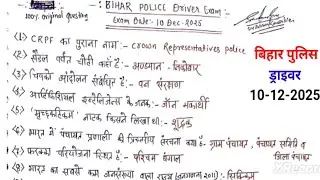 100% original Question
BIHAR POLICE Driver Exam:-
Exam Date:- 10 Dec - 2025
(1) CRPF का पुराना नाम :- Crown Representatives police
(2) सैडल पर्वत चोटी कहाँ है :- अण्डमान - निकोबार
(3) चिपको आंदोलन संबंधित है :- वन संरक्षण
(4) आर्टिफिशियल इंटेलिजेन्स के जनक :- जॉन मकार्थी
(5) 'मृच्छकटिकम' नाटक किसने लिखा था:- शूद्रक
(6) भारत में पंचायत प्रणाली की त्रिस्तरीय संरचना क्या है:- ग्राम पंचायत, पंचायत समिति व जिला पंचायत
(7) फरक्का परियोजना स्थित है:- पश्चिम बंगाल
(8) भारत का सबसे कम जनसंख्या वाला राज्य (जनगणना 2011) :- सिक्किम
बिहार पुलिस
ड्राइवर
10-12-2025